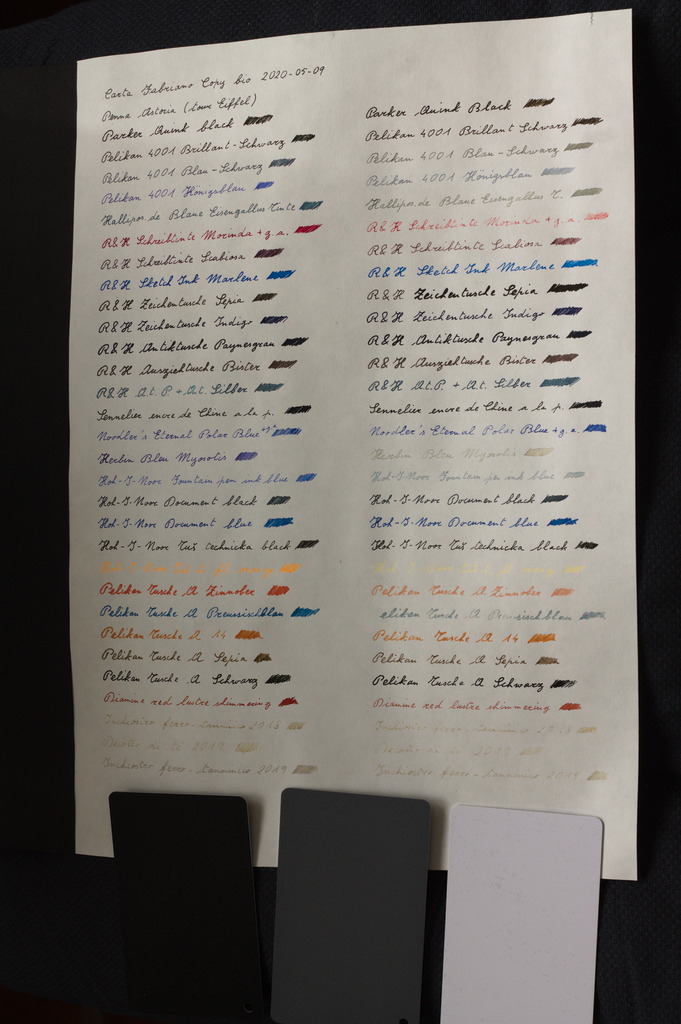 Carta Fabriano Copy bio 2020-05-09
Penna Astoria (tour Eiffel)
Parker Quink black
Pelikan 4001 Brillant-Schwarz
Pelikan 4001 Blau-Schwarz
Pelikan 4001 Königsblau
Hallipos.de Blaue Eisengallus Tinte
R&K Schreibtinte Morinda + g.a.
R&K Schreibtinte Scabiosa
R&K Sketch Ink Marlene
R&K Zeichentusche Sepia
R&K Zeichentusche Indigo
R&K Antiktusche Paynesgrau
R&K Ausziehtusche Bister
R&K At.P + At. Silber
Sennelier encre de Chine a la p.
Noodler's Eternal Polar Blue
Herbin Bleu Myosotis
Koh-I-Noor Fountain pen ink blue
Koh-I-Noor Document black
Koh-I-Noor Document blue
Koh-I-Noor Tuš technicka black
Pelikan Tusche A Zinnober
Pelikan Tusche A Preussischblau
Pelikan Tusche A 14
Pelikan Tusche A Sepia
Pelikan Tusche A Schwarz
Diamine red lustre shimmering
Inchiostro ferro-tannico 2018
2019
Inchiostro ferro-tannunico 2019
Parker Quink Black
Pelikan 4001 Brillant Schwarz
Pelikan 4001 Blau-Schwarz
Pelikan 4001 Königsblau
Hallipos.de Blaue Eisengallus T.
R&K Schreibtinte Morinda + g.a.
R&K Schreibtinte Scabiosa
R&K Sketch Ink Marlene
R&K Zeichentusche Sepia
R&K Zeichentusche Indigo
R&K Antiktusche Paynesgrau
R&K Ausziehtusche Bister
R&K At.P + At. Silber
Sennelier encre de Chine a la p.
Noodler's Eternal Polar Blue + g.a.
Herbin Bleu Myosotis
Koh-I-Noor Fountain pen ink blue
Koh-I-Noor Document black
Koh-I-Noor Document blue
Koh-I-Noor Tuš technicka black
Pelikan Tusche A Zinnober
elikan Tusche A Preussischblau
Pelikan Tusche A 14
Pelikan Tusche A Sepia
Pelikan Tusche A Schwarz
Diamine red lustre shimmering
Inchiostro ferro-tannico 2018
2019
Inchiostro ferro-tannunico 2019